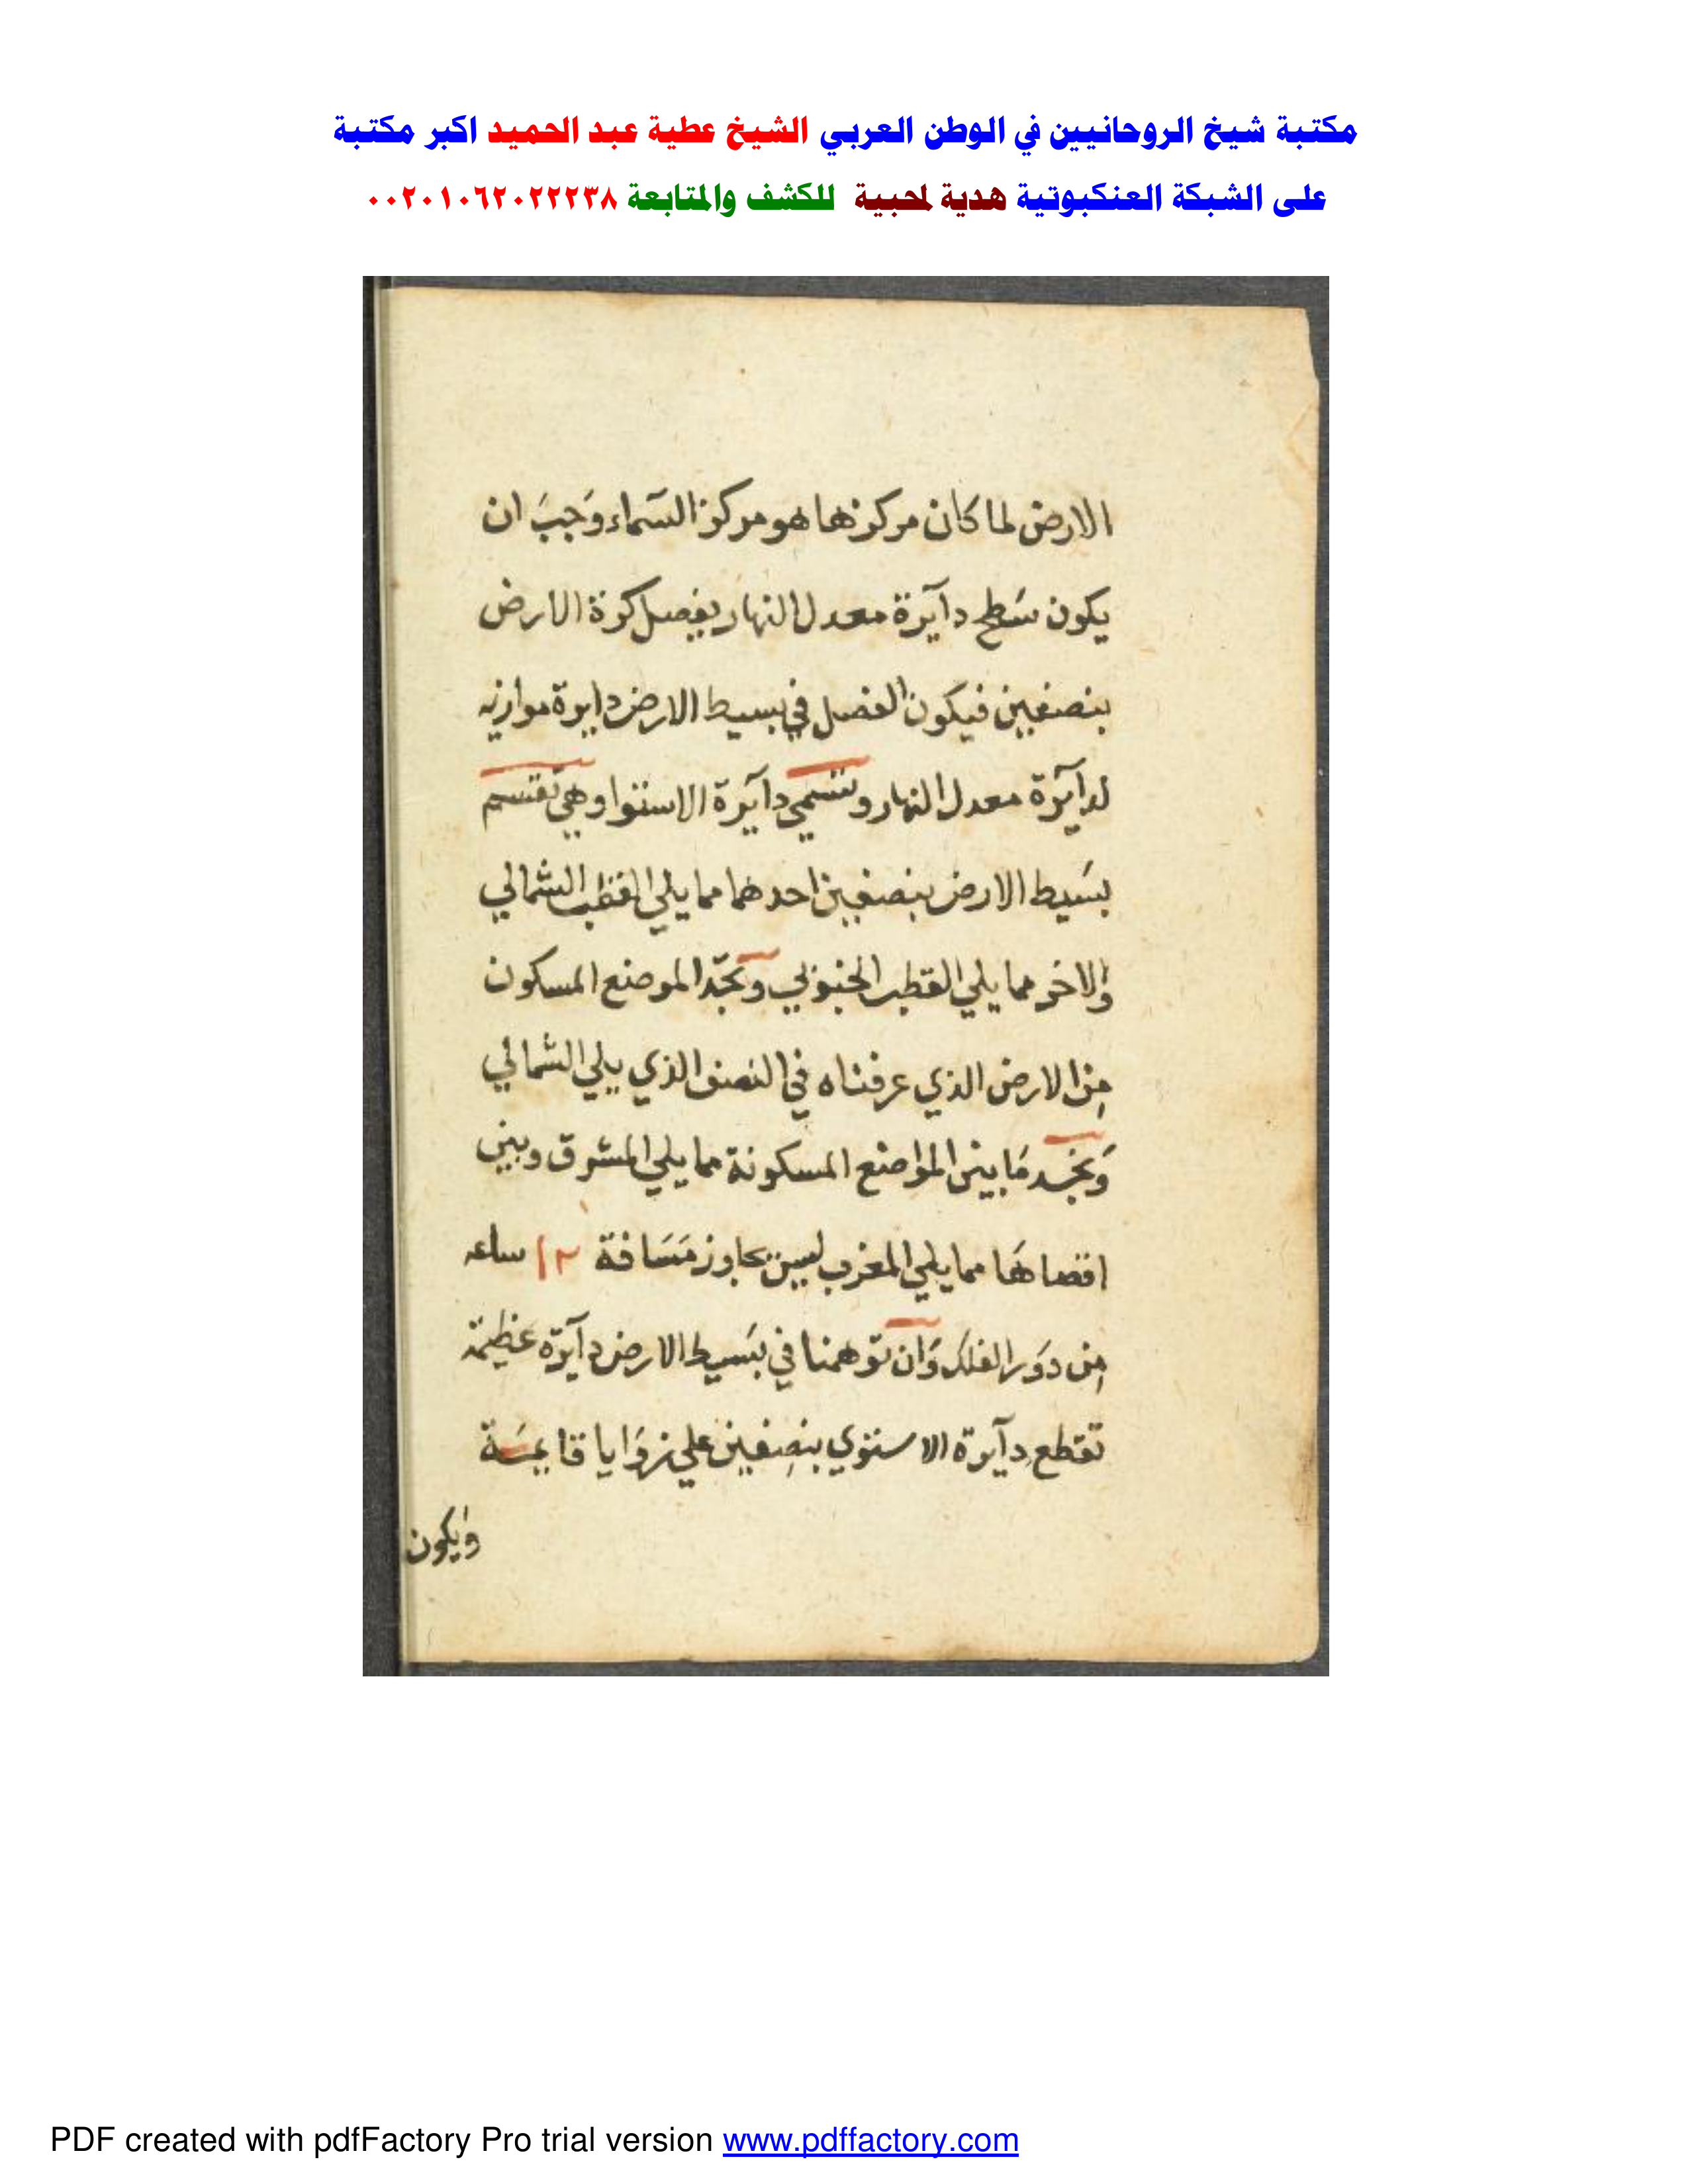 مكتبة شيخ الروحانيين في الوطن العربي الشيخ عطية عبد الحميد اكبر مكتبة
على الشبكة العنكبوتية هدية لمحبية للكشف والمتابعة ٠٠٢٠١٠٦٢٠٢٢٢٣٨
الارض لما كان مركزها هو مركز السماء وجب ان
يكون سطح دآيرة معدل النهار يفصل كرة الارض
بنصفين فيكون الفصل في بسيط الارض دايرة موازيه
لدآيرة معدل النهار وتسمي دآيرة الاستوا وهي تقتسم
بسيط الارض بنصفين احدهما مما يلي القطب الشمالي
والاخر مما يلي القطب الجنوبي ونجد الموضع المسكون
من الارض الذي عرفناه في النصف الذي يلي الشمالي
ونجد ما بين المواضع المسكونة مما يلي المشرق وبين
اقصاها مما يلي المغرب ليس تجاوز مسافة ١٢ ساعه
من دور الفلك وان توهمنا في بسيط الارض دآيرة عظيمة
تقطع دآيرة الاستوي بنصفين علي زوايا قايمة
ويكون
PDF created with pdfFactory Pro trial version www.pdffactory.com